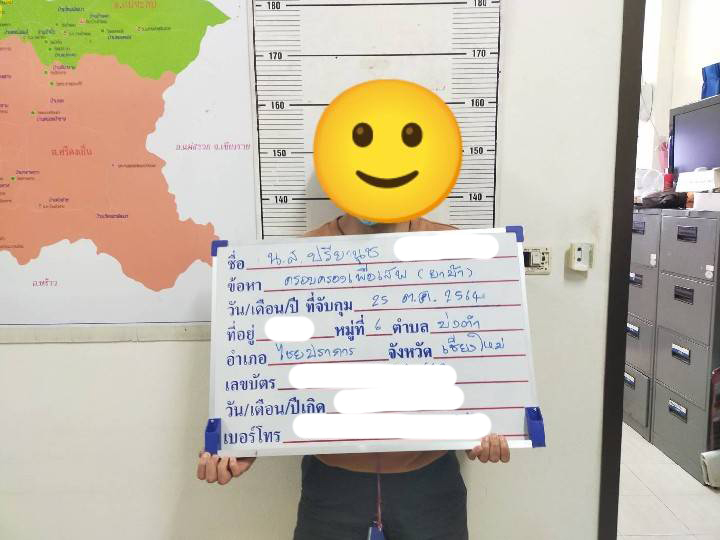 อ.แม่สรวย จ.เชียงราย
ต.ศรีดงเย็น
อ.พร้าว
180 180
170 170
160 160
150 150
140 140
ชื่อ น.ส. ปรียานุช
ข้อหา ครอบครองเพื่อเสพ (ยาบ้า)
วัน/เดือน/ปี ที่จับกุม 25 ต.ค. 2564
ที่อยู่ หมู่ที่ 6 ตำบล ปงตำ
อำเภอ ไชยปราการ จังหวัด เชียงใหม่
เลขบัตร
วัน/เดือน/ปีเกิด
เบอร์โทร